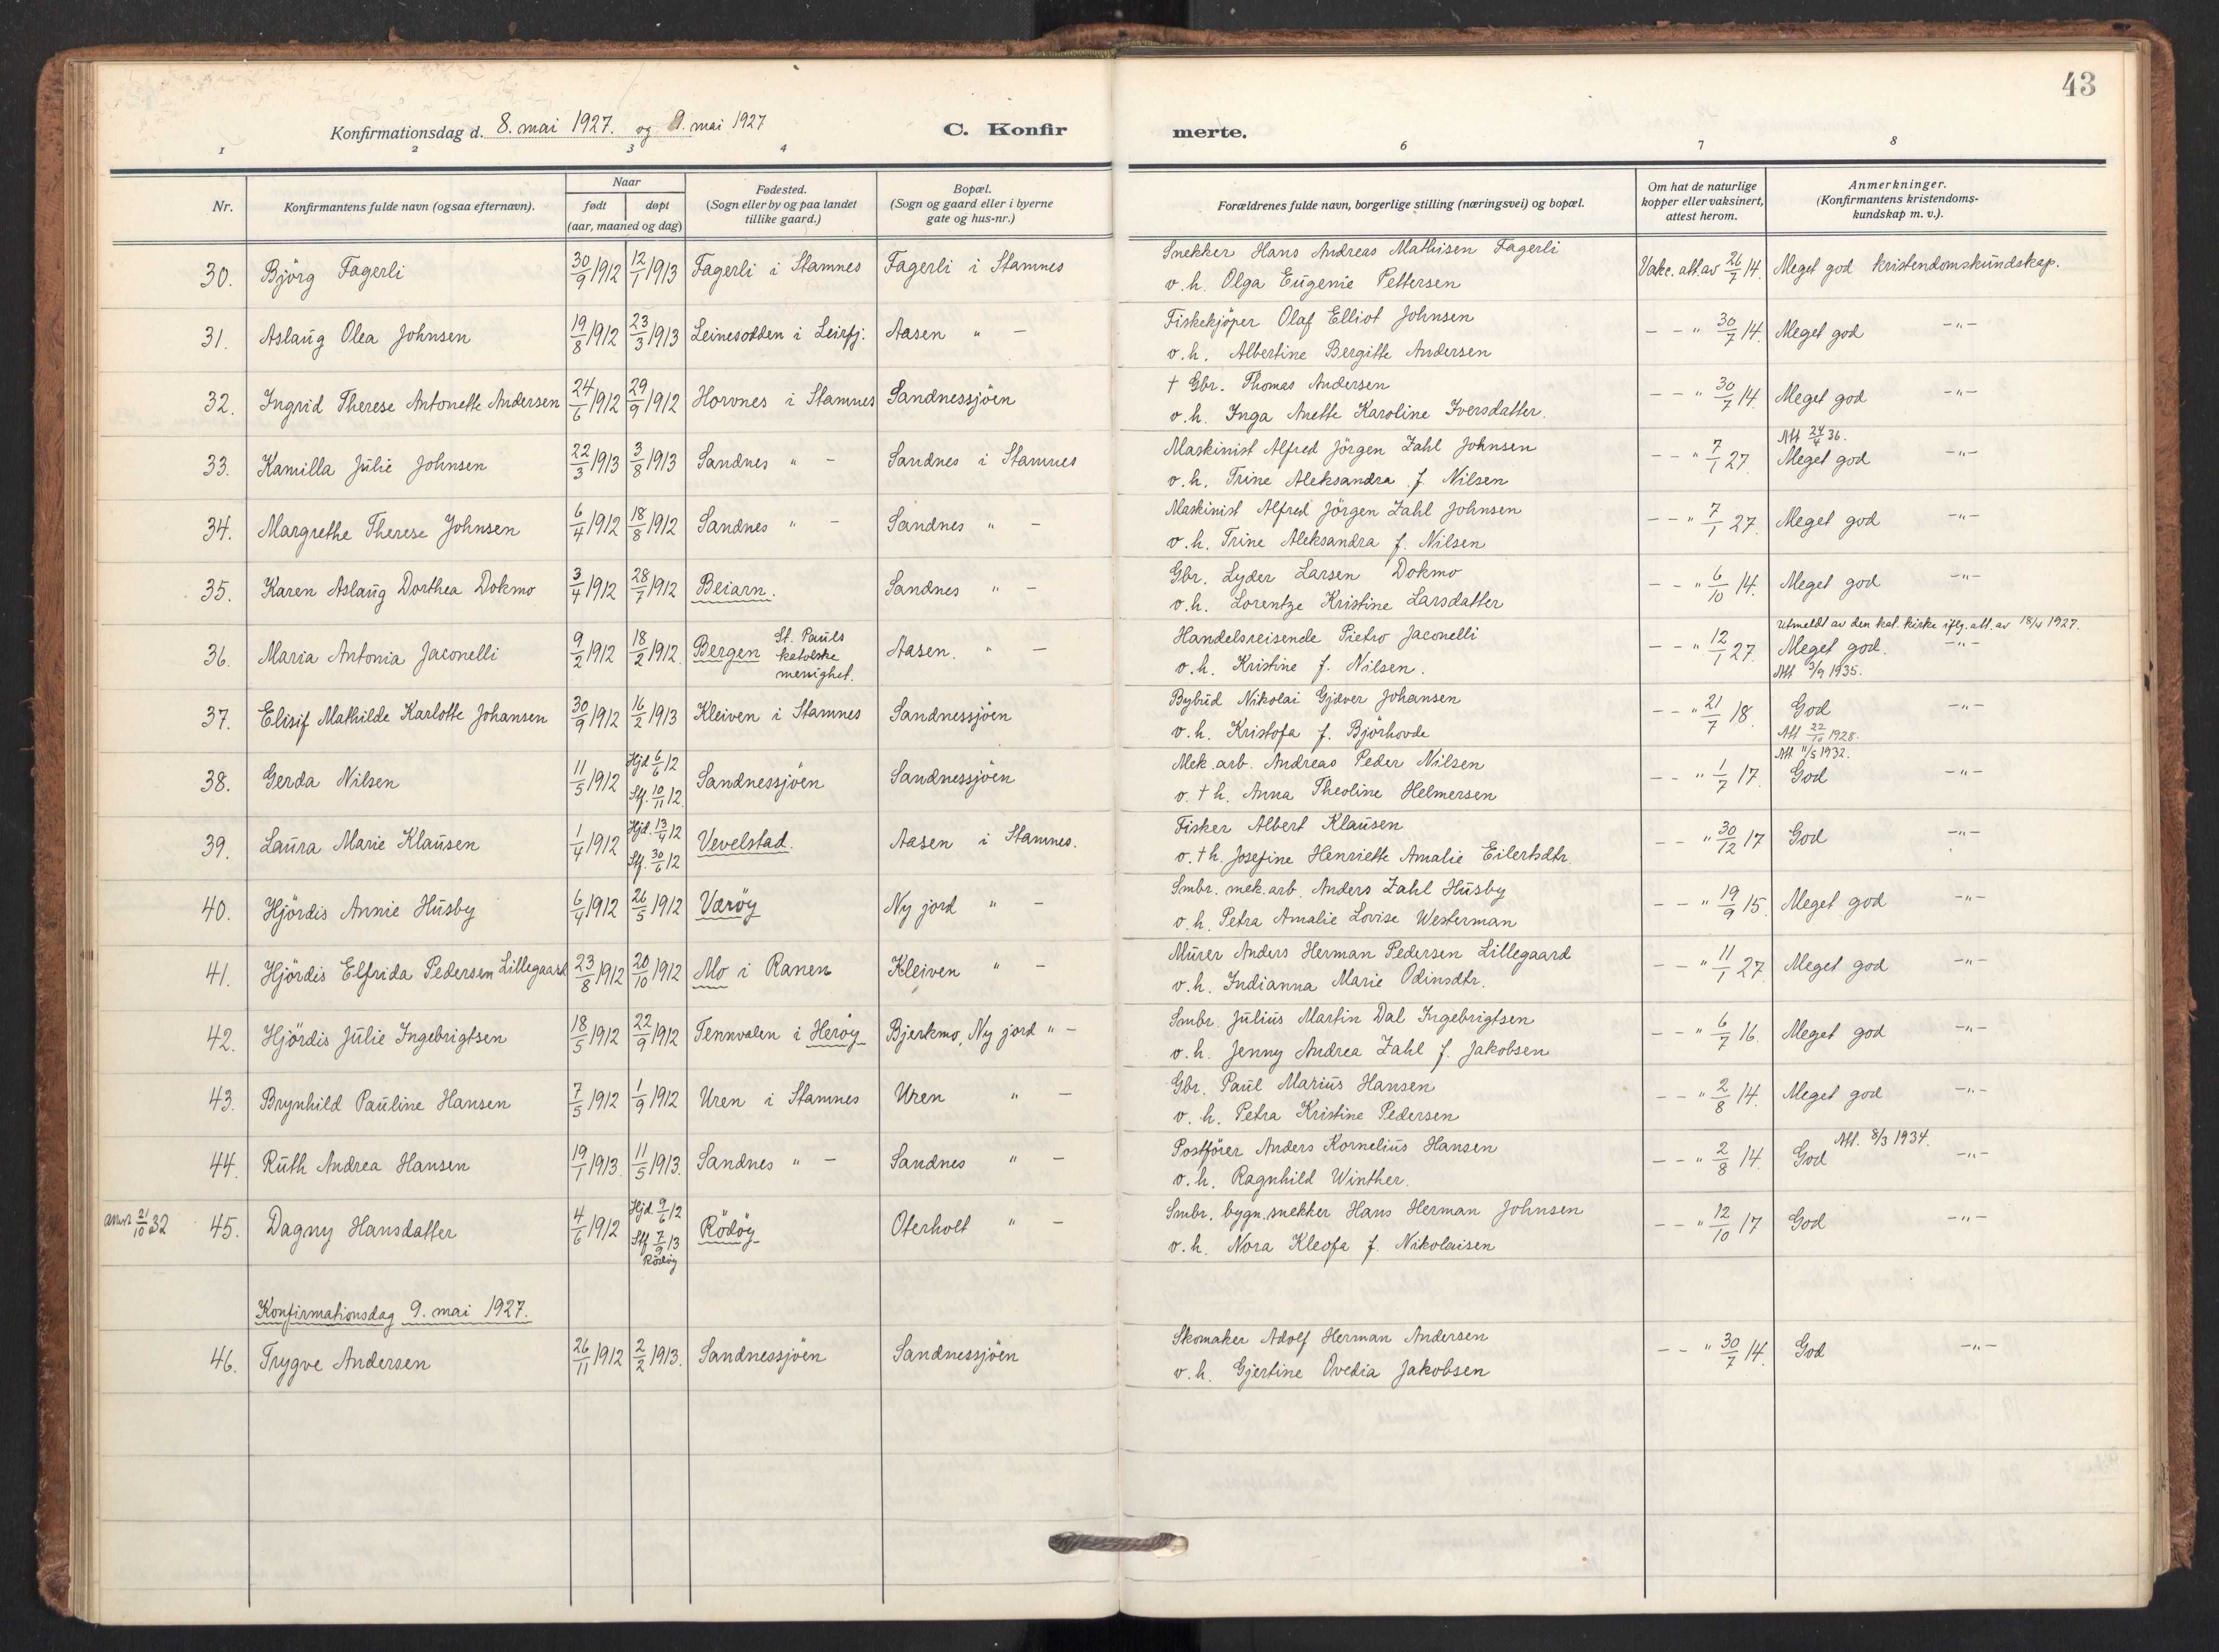 43
Konfirmationsdag d. 8. mai 1927. og 9. mai 1927
C. Konfirmerte.
1 2 3 4 6 7 8
Nr.
Konfirmantens fulde navn (ogsaa efternavn).
Naar
født døpt
(aar, maaned og dag)
Fødested.
(Sogn eller by og paa landet
tillike gaard.)
Bopæl.
(Sogn og gaard eller i byerne
gate og hus-nr.)
Forældrenes fulde navn, borgerlige stilling (næringsvei) og bopæl.
Om hat de naturlige
kopper eller vaksinert,
attest herom.
Anmerkninger.
(Konfirmantens kristendoms-
kundskap m. v.).
30. Björg Fagerli 30/9 1912 12/1 1913 Fagerli i Stamnes Fagerli i Stamnes
Snekker Hans Andreas Mathisen Fagerli
o. h. Olga Eugenie Pettersen
Vakc. att. av 26/7 14. Meget god kristendomskundskap.
31. Aslaug Olea Johnsen 19/8 1912 23/3 1913 Leinesodden i Leirfj. Aasen " —
Fiskekjöper Olaf Elliot Johnsen
o. h. Albertine Bergitte Andersen
— — " 30/7 14. Meget god —"—
32. Ingrid Therese Antonette Andersen 24/6 1912 29/9 1912 Horvnes i Stamnes Sandnessjöen
† Gbr. Thomas Andersen
o. h. Inga Anette Karoline Iversdatter.
— — " 30/7 14. Meget god —"—
33. Kamilla Julie Johnsen 22/3 1913 3/8 1913 Sandnes " — Sandnes i Stamnes
Maskinist Alfred Jörgen Zahl Johnsen
o. h. Trine Aleksandra f. Nilsen
— — " 7/1 27. Att 24/4 36.
Meget god —"—
34. Margrethe Therese Johnsen 6/4 1912 18/8 1912 Sandnes " — Sandnes " —
Maskinist Alfred Jörgen Zahl Johnsen
o. h. Trine Aleksandra f. Nilsen
— — " 7/1 27. Meget god —"—
35. Karen Aslaug Dorthea Dokmo 3/4 1912 28/7 1912 Beiarn. Sandnes " —
Gbr. Lyder Larsen Dokmo
o. h. Lorentze Kristine Larsdatter
— — " 6/10 14. Meget god —"—
36. Maria Antonia Jaconelli 9/2 1912 18/2 1912. Bergen St. Pauls
katolske
menighet. Aasen. " —
Handelsreisende Pietro Jaconelli
o. h. Kristine f. Nilsen.
— — " 12/1 27. Utmeldt av den kat. kirke iflg. att. av 18/4 1927.
Meget god. —"—
Att 3/9 1935.
37. Elisif Mathilde Karlotte Johansen 30/9 1912 16/2 1913 Kleiven i Stamnes Sandnessjöen
Bybud Nikolai Gjæver Johansen
o. h. Kristofa f. Björhovde
— — " 21/7 18. God —"—
Att 22/10 1928.
38. Gerda Nilsen 11/5 1912 Hjd 6/6 12
Stf. 10/11 12. Sandnessjöen Sandnessjöen
Mek. arb. Andreas Peder Nilsen
o. † h. Anna Theoline Helmersen
— — " 1/7 17. Att 11/5 1932.
God —"—
39. Laura Marie Klausen 1/4 1912 Hjd. 13/4 12
Stf. 30/6 12 Vevelstad. Aasen i Stamnes.
Fisker Albert Klausen
o. † h. Josefine Henriette Amalie Eilertsdtr.
— — " 30/12 17 God —"—
40. Hjördis Annie Husby 6/4 1912 26/5 1912 Væröy Ny jord " —
Smbr. mek. arb. Anders Zahl Husby
o. h. Petra Amalie Lovise Westerman
— — " 19/9 15. Meget god —"—
41. Hjördis Elfrida Pedersen Lillegaard 23/8 1912 20/10 1912 Mo i Ranen Kleiven " —
Murer Anders Herman Pedersen Lillegaard
o. h. Indianna Marie Odinsdtr.
— — " 11/1 27. Meget god —"—
42. Hjördis Julie Ingebrigtsen 18/5 1912 22/9 1912 Tennvalen i Heröy Bjerkmo, Ny jord " —
Smbr. Julius Martin Dal Ingebrigtsen
o. h. Jenny Andrea Zahl f. Jakobsen
— — " 6/7 16. Meget god —"—
43. Brynhild Pauline Hansen 7/5 1912 1/9 1912 Uren i Stamnes Uren " —
Gbr. Paul Marius Hansen
o. h. Petra Kristine Pedersen
— — " 2/8 14. Meget god —"—
44. Ruth Andrea Hansen 19/1 1913. 11/5 1913. Sandnes " — Sandnes " —
Postförer Anders Kornelius Hansen
o. h. Ragnhild Winther.
— — " 2/8 14. God Att. 8/3 1934. —"—
21/10 32 45. Dagny Hansdatter 4/6 1912 Hjd. 9/6 12
Stf 7/9 13
Rödöy Rödöy Oterholt " —
Smbr. bygn. snekker Hans Herman Johnsen
o. h. Nora Kleofa f. Nikolaisen
— — " 12/10 17 God —"—
Konfirmationsdag 9. mai 1927.
46. Trygve Andersen 26/11 1912 2/2 1913. Sandnessjöen Sandnessjöen
Skomaker Adolf Herman Andersen
o. h. Gjertine Ovedia Jakobsen
— — " 30/7 14. God —"—